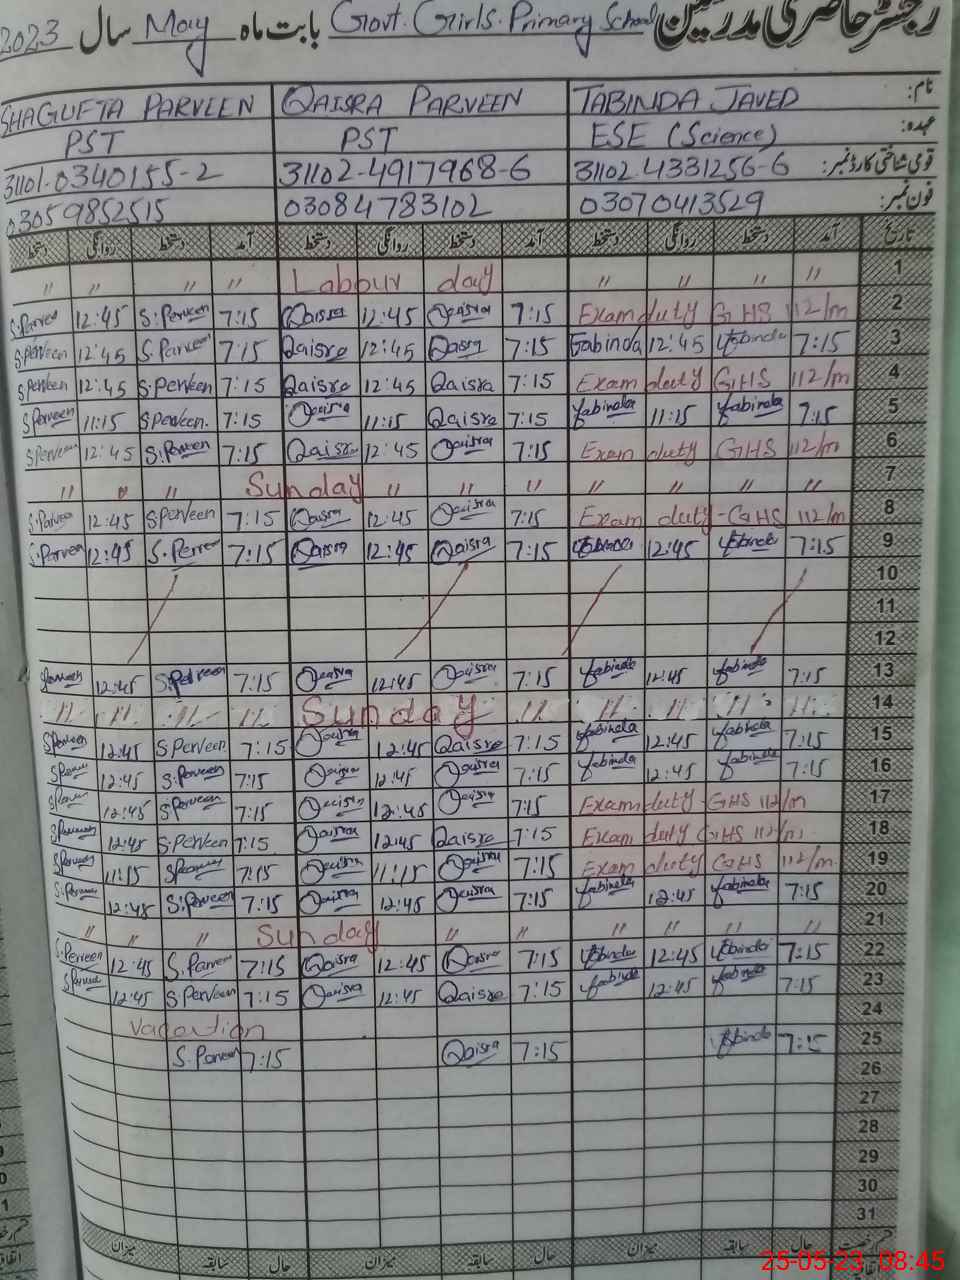 رجسٹر حاضری مدرسین Govt. Girls. Primary School بابت ماہ May سال 2023
نام: TABINDA JAVED QAISRA PARVEEN SHAGUFTA PARVEEN
عہدہ: ESE (Science) PST PST
قومی شناختی کارڈ نمبر: 31102-4331256-6 31102-4917968-6 31101-0340155-2
فون نمبر: 03070413529 03084783102 03059852515
تاریخ آمد دستخط روانگی دستخط آمد دستخط روانگی دستخط آمد دستخط روانگی دستخط
1 " " " " Labour day " " " "
2 Exam duty GHS 112/m 7:15 Qaisra 12:45 Qaisra 7:15 S.Parveen 12:45 S.Parveen
3 7:15 Tabinda 12:45 Tabinda 7:15 Qaisra 12:45 Qaisra 7:15 S.Parveen 12:45 S.Perveen
4 Exam duty GHS 112/m 7:15 Qaisra 12:45 Qaisra 7:15 S.Perveen 12:45 S.Perveen
5 7:15 Tabinda 11:15 Tabinda 7:15 Qaisra 11:15 Qaisra 7:15 S.Perveen. 11:15 S.Perveen
6 Exam duty GHS 112/m 7:15 Qaisra 12:45 Qaisra 7:15 S.Perveen 12:45 S.Perveen
7 " " " " " " " Sunday " " "
8 Exam duty - GHS 112/m 7:15 Qaisra 12:45 Qaisra 7:15 S.Perveen 12:45 S.Parveen
9 7:15 Tabinda 12:45 Tabinda 7:15 Qaisra 12:45 Qaisra 7:15 S.Perveen 12:45 S.Parveen
10
11
12
13 7:15 Tabinda 12:45 Tabinda 7:15 Qaisra 12:45 Qaisra 7:15 S.Perveen 12:45 S.Perveen
14 " " " " " Sunday " " " "
15 7:15 Tabinda 12:45 Tabinda 7:15 Qaisra 12:45 Qaisra 7:15 S.Perveen 12:45 S.Perveen
16 7:15 Tabinda 12:45 Tabinda 7:15 Qaisra 12:45 Qaisra 7:15 S.Perveen 12:45
17 Exam duty - GHS 112/m 7:15 Qaisra 12:45 Qaisra 7:15 S.Perveen 12:45
18 Exam duty GHS 112/m 7:15 Qaisra 12:45 Qaisra 7:15 S.Perveen 12:45
19 Exam duty GHS 112/m. 7:15 Qaisra 11:15 Qaisra 7:15 11:15
20 7:15 Tabinda 12:45 Tabinda 7:15 Qaisra 12:45 Qaisra 7:15 S.Perveen 12:45
21 " " " " " " Sunday " " "
22 7:15 Tabinda 12:45 Tabinda 7:15 Qaisra 12:45 Qaisra 7:15 S.Parveen 12:45 S.Perveen
23 7:15 Tabinda 12:45 Tabinda 7:15 Qaisra 12:45 Qaisra 7:15 S.Perveen 12:45
24 Vacation
25 7:15 Tabinda 7:15 Qaisra 7:15 S.Parveen
26
27
28
29
30
31
حال سابقہ میزان حال سابقہ میزان
25-05-23 08:45